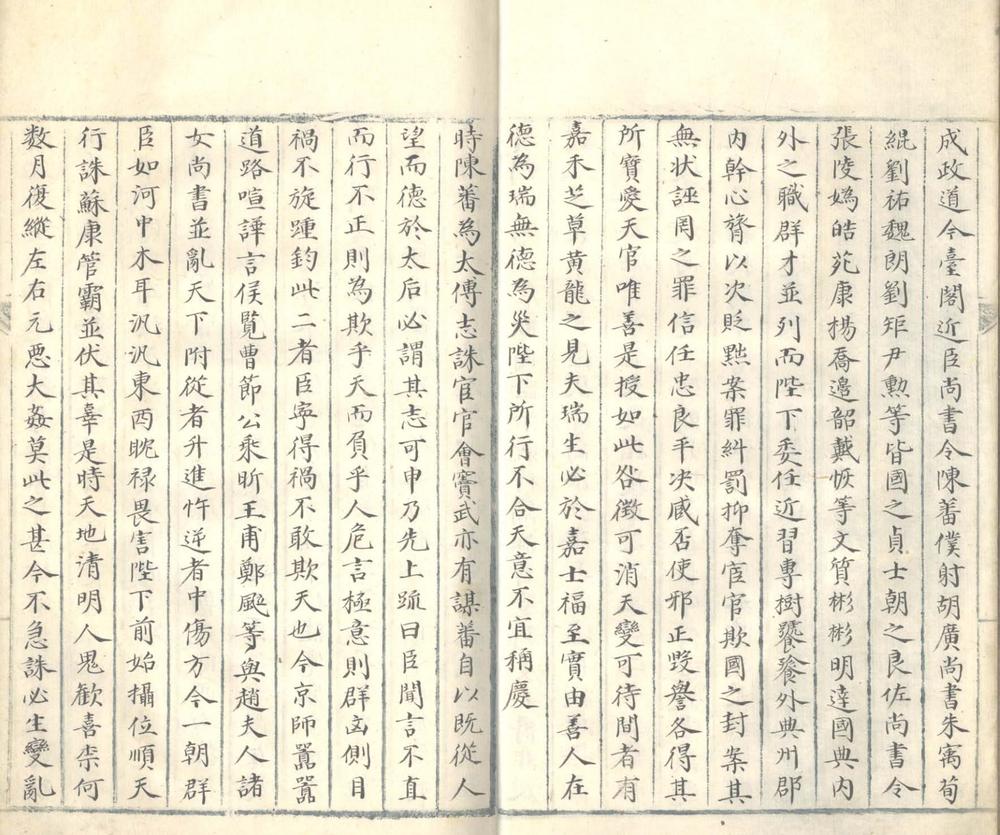 成政道今臺閣近臣尚書令陳蕃僕射胡廣尚書朱寓荀
緄劉祐魏朗劉矩尹勲等皆國之貞士朝之良佐尚書令
張陵媯皓苑康楊喬邉韶戴恢等文質彬彬明達國典内
外之職群才並列而陛下委任近習專樹饕餮外典州郡
内幹心膂以次貶黜案罪糾罰抑奪宦官欺國之封案其
無狀誣罔之罪信任忠良平决臧否使邪正毀譽各得其
所寶愛天官唯善是授如此咎徴可消天變可待間者有
嘉禾芝草黄龍之見夫瑞生必於嘉士福至實由善人在
德為瑞無德為灾陛下所行不合天意不宜稱慶
時陳蕃為太傅志誅宦官會竇武亦有謀蕃自以既從人
望而德於太后必謂其志可申乃先上疏曰臣聞言不直
而行不正則為欺乎天而負乎人危言極意則群凶側目
禍不旋踵鈞此二者臣寧得禍不敢欺天也今京師嚻嚻
道路喧譁言侯覧曹節公乘昕王甫鄭颯等與趙夫人諸
女尚書並亂天下附從者升進忤逆者中傷方今一朝群
臣如河中木耳汎汎東西眈禄畏害陛下前始攝位順天
行誅蘇康管霸並伏其辜是時天地清明人鬼歡喜柰何
数月復縱左右元惡大姦莫此之甚今不急誅必生變亂